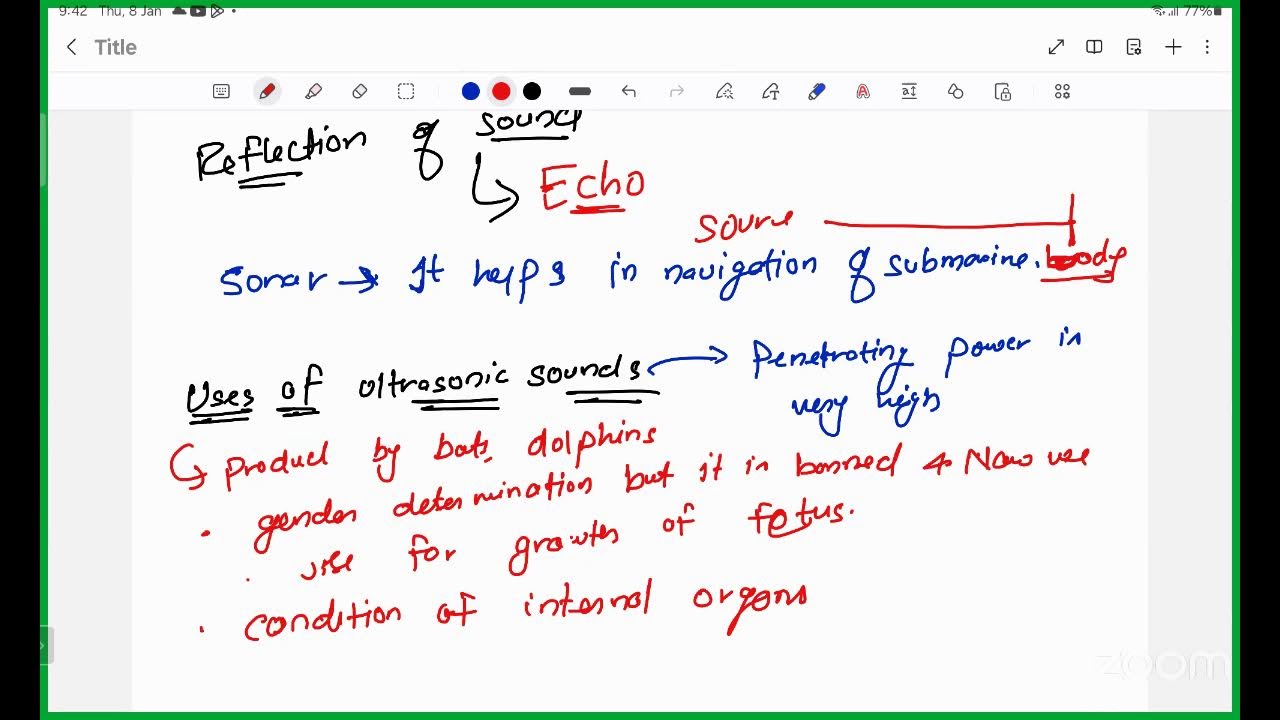 9:42 Thu, 8 Jan
77%
Title
Reflection of sound
Echo
Sourc
Sonar → It helps in navigation of submarine. body
Uses of ultrasonic sounds → Penetrating power is
very high
product by bats, dolphins
· gender determination but it is banned & Now use
· use for growth of fetus.
· condition of internal organs
zoom